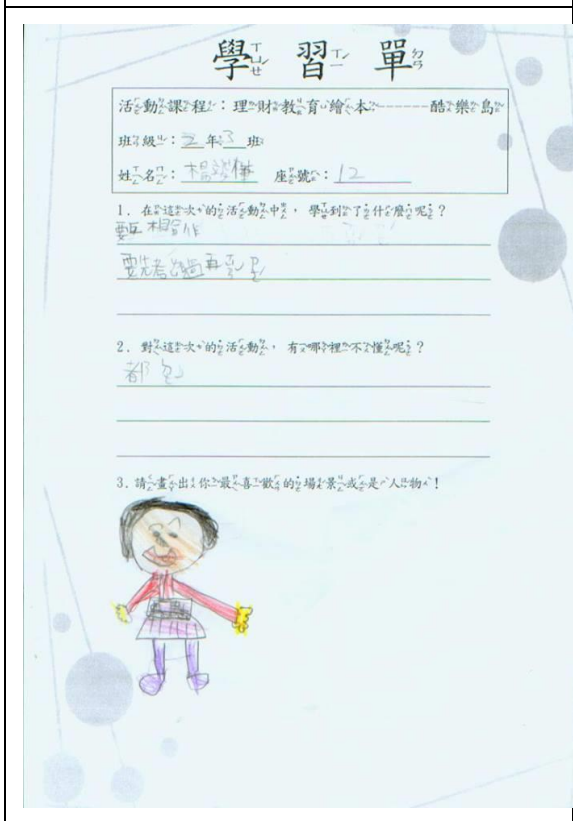 學習單
活動課程：理財教育繪本------酷樂島
班級：二年3班
姓名：楊 座號：12
1. 在這次的活動中，學到了什麼呢？
要互相合作
要先考慮過再
2. 對這次的活動，有哪裡不懂呢？
都
3. 請畫出你最喜歡的場景或是人物！